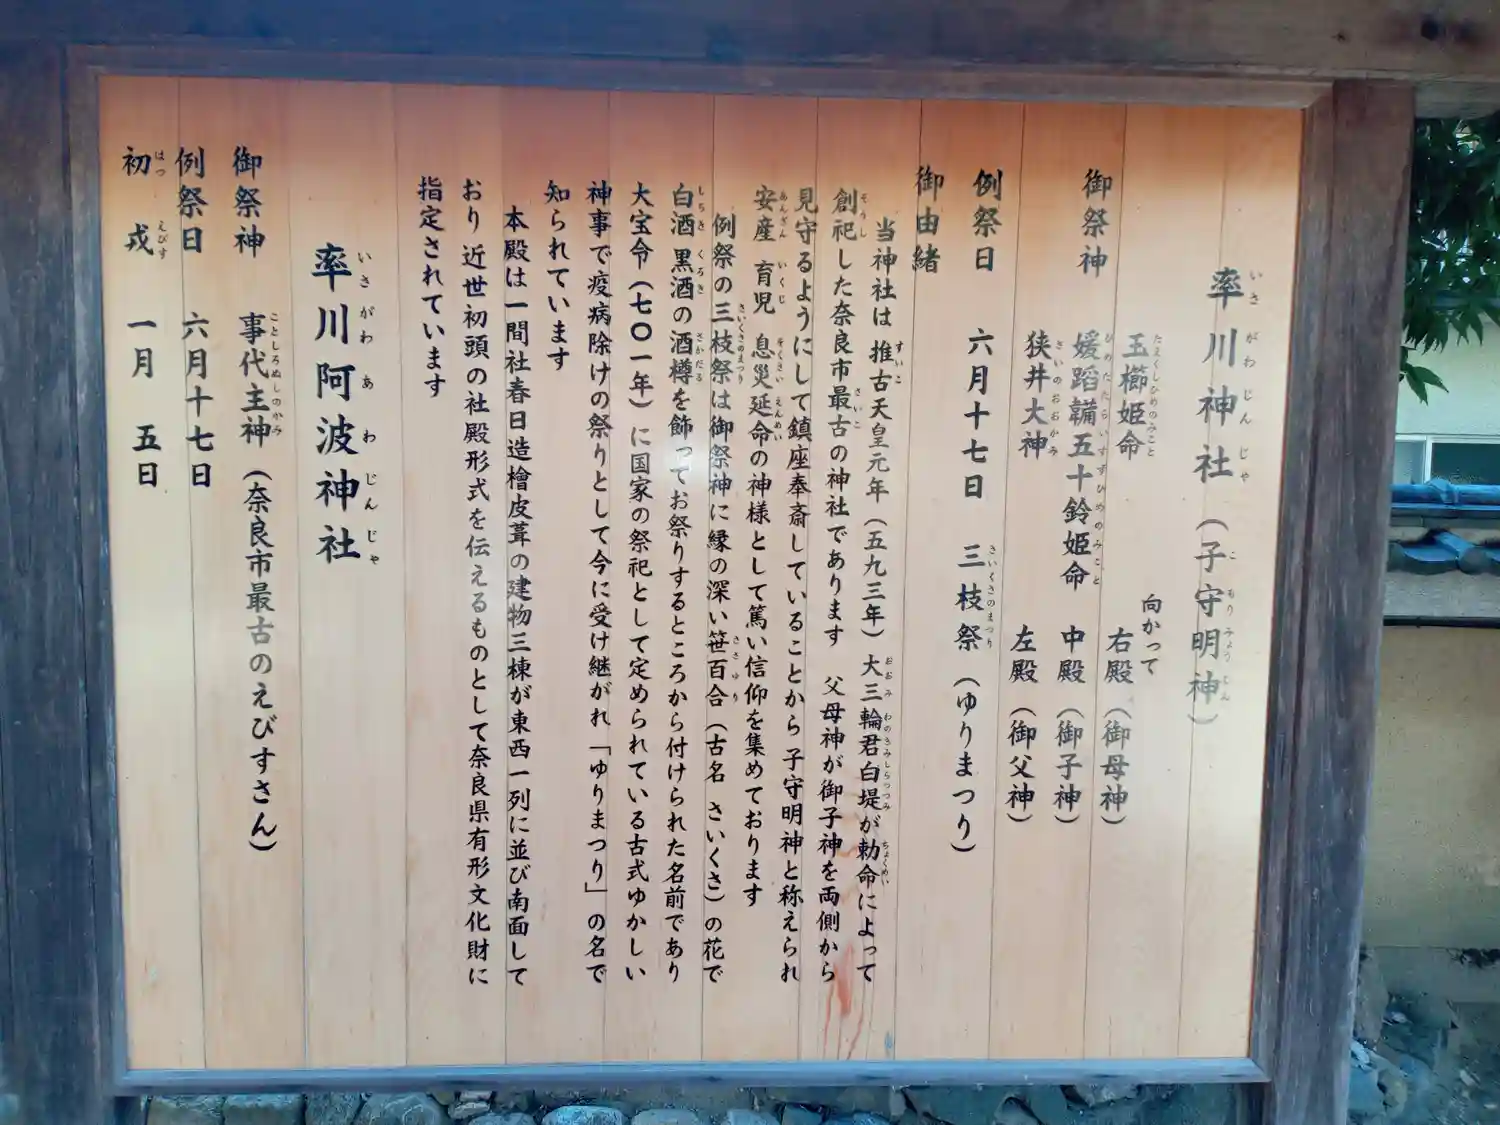 率川神社（子守明神）
御祭神
向かって
玉櫛姫命 右殿（御母神）
媛蹈韛五十鈴姫命 中殿（御子神）
狭井大神 左殿（御父神）
例祭日 六月十七日 三枝祭（ゆりまつり）
御由緒
当神社は 推古天皇元年（五九三年）大三輪君白堤が勅命によって
創祀した奈良市最古の神社であります 父母神が御子神を両側から
見守るようにして鎮座奉斎していることから 子守明神と称えられ
安産 育児 息災延命の神様として篤い信仰を集めております
例祭の三枝祭は御祭神に縁の深い笹百合（古名 さいくさ）の花で
白酒 黒酒の酒樽を飾ってお祭りするところから付けられた名前であり
大宝令（七〇一年）に国家の祭祀として定められている古式ゆかしい
神事で疫病除けの祭りとして今に受け継がれ「ゆりまつり」の名で
知られています
本殿は一間社春日造檜皮葺の建物三棟が東西一列に並び南面して
おり 近世初頭の社殿形式を伝えるものとして奈良県有形文化財に
指定されています
率川阿波神社
御祭神 事代主神（奈良市最古のえびすさん）
例祭日 六月十七日
初戎 一月五日